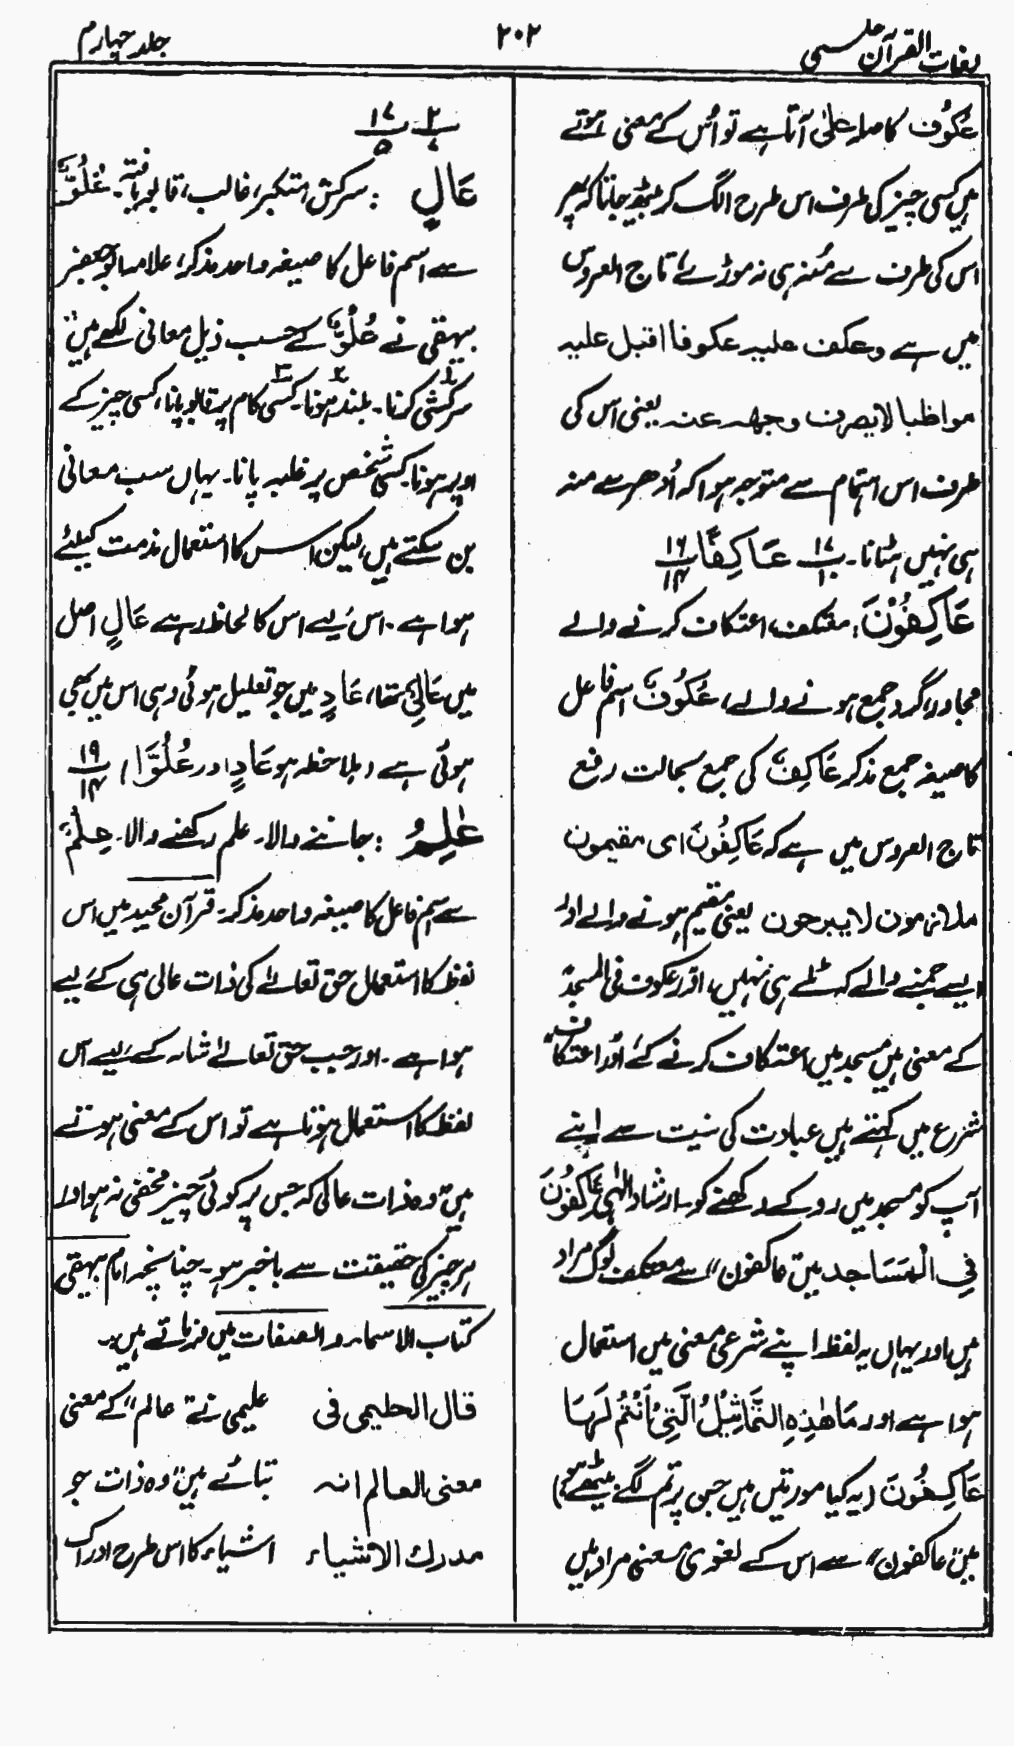 لغات القرآن
۲۰۲
جلد چہارم
عُکُوْف کا صلہ علیٰ آتا ہے تو اُس کے معنی ہوتے
ہیں کسی چیز کی طرف اس طرح الگ کر بیٹھ جانا کہ پھر
اس کی طرف سے مُنہ ہی نہ موڑے، تاج العروس
میں ہے وعکف علیہ عکوفا اقبل علیہ
مواظبا لا یصرف وجھہ عنہ یعنی اس کی
طرف اس اہتمام سے متوجہ ہوا کہ اُدھر سے منہ
ہی نہیں ہٹاتا۔ ب ۱۷/۱۰ عَاکِفًا ب ۱۶/۱۴
عَاکِفُوْنَ: معتکف، اعتکاف کرنے والے
مجاور، گرد جمع ہونے والے، عُکُوْفٌ اسم فاعل
کا صیغہ جمع مذکر عَاکِفٌ کی جمع بحالت رفع
تاج العروس میں ہے کہ عَاکِفُوْنَ ای مقیمون
ملازمون لا یبرحون یعنی مقیم ہونے والے اور
ایسے جمنے والے کہ ٹلے ہی نہیں، اور عکوف فی المسجد
کے معنی ہیں مسجد میں اعتکاف کرنے کے، اور اعتکاف
شرع میں کہتے ہیں عبادت کی نیت سے اپنے
آپ کو مسجد میں روکے رکھنے کو۔ ارشاد الٰہی عَاکِفُوْنَ
فِی الْمَسَاجِد میں "عاکفون" سے معتکف لوگ مراد
ہیں اور یہاں یہ لفظ اپنے شرعی معنی میں استعمال
ہوا ہے اور مَا ھٰذِہِ التَّمَاثِیْلُ الَّتِیْ اَنْتُمْ لَہَا
عَاکِفُوْنَ (یہ کیا مورتیں ہیں جن پر تم لگے بیٹھے ہو)
میں "عاکفون" سے اس کے لغوی معنی مراد ہیں
۲ ۱۷/۵
عَالٍ : سرکش، متکبر، غالب، قابو یافتہ۔ عُلُوٌّ
سے اسم فاعل کا صیغہ واحد مذکر، علامہ ابو جعفر
بیہقی نے عُلُوٌّ کے حسب ذیل معانی لکھے ہیں:
سرکشی کرنا۔ بلند ہونا۔ کسی کام پر قابو پانا، کسی چیز کے
اوپر ہونا۔ کسی شخص پر غلبہ پانا۔ یہاں سب معانی
بن سکتے ہیں، لیکن اس کا استعمال مذمت کیلئے
ہوا ہے۔ اس لیے اس کا لحاظ رہے عَالٍ اصل
میں عَالِیٌ تھا، عَادٍ میں جو تعلیل ہوئی وہی اس میں بھی
ہوئی ہے (ملاحظہ ہو عَادٍ اور عُلُوًّا) ۱۹/۱۴
عٰلِمُ : جاننے والا۔ علم رکھنے والا۔ عِلْمٌ
سے اسم فاعل کا صیغہ واحد مذکر۔ قرآن مجید میں اس
لفظ کا استعمال حق تعالےٰ کی ذات عالی ہی کے لیے
ہوا ہے۔ اور جب حق تعالےٰ شانہ کے لیے اس
لفظ کا استعمال ہوتا ہے تو اس کے معنی ہوتے
ہیں "وہ ذات عالی کہ جس پر کوئی چیز مخفی نہ ہو اور
ہر چیز کی حقیقت سے باخبر ہو۔ چنانچہ امام بیہقی
کتاب الاسماء والصفات میں فرماتے ہیں:۔
قال الحلیمی فی    حلیمی نے "عالم" کے معنی
معنی العالم انہ    بتائے ہیں "وہ ذات جو
مدرک الاشیاء    اشیاء کا اس طرح ادراک